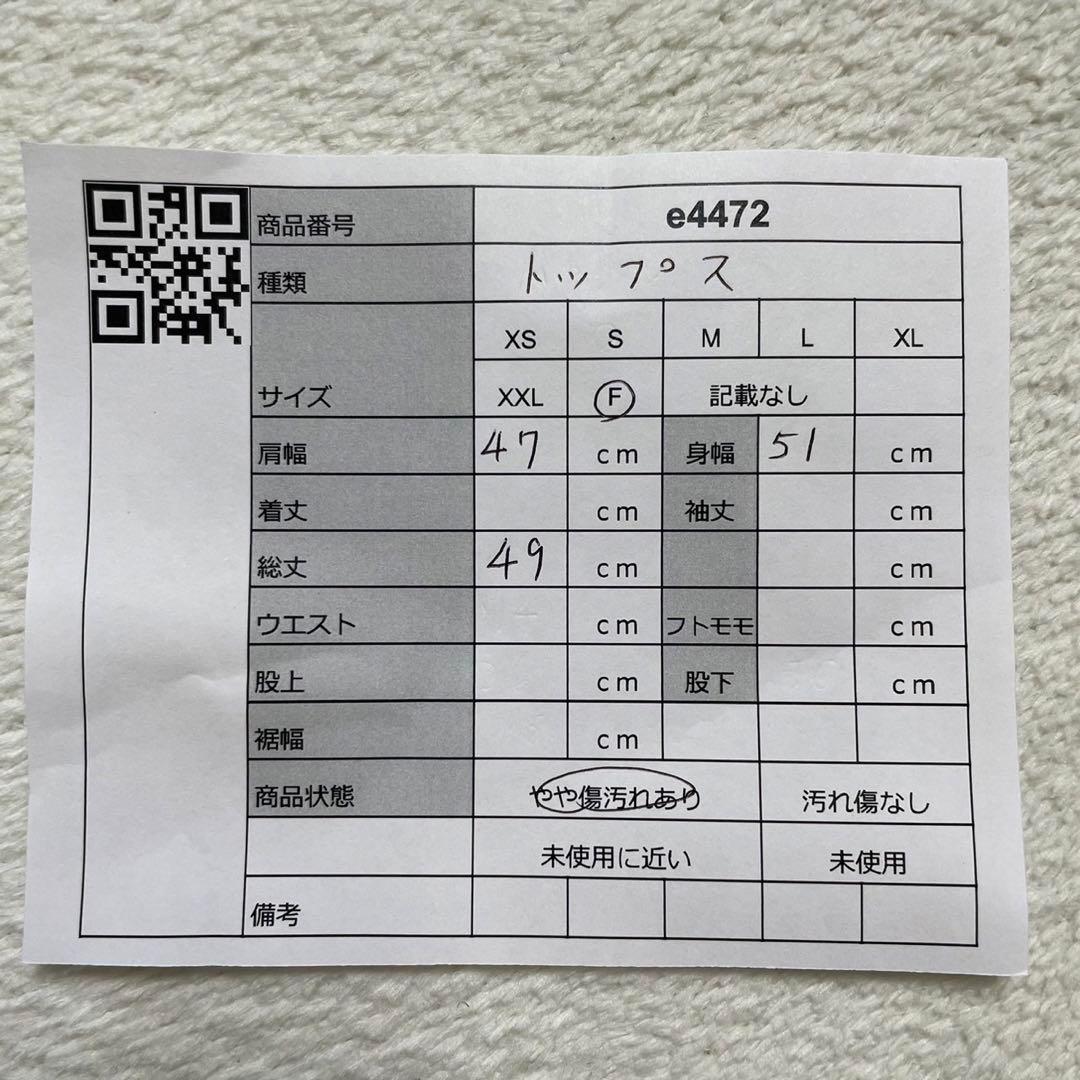 商品番号 e4472
種類 トップス
XS S M L XL
サイズ XXL F 記載なし
肩幅 47 cm 身幅 51 cm
着丈 cm 袖丈 cm
総丈 49 cm cm
ウエスト cm フトモモ cm
股上 cm 股下 cm
裾幅 cm
商品状態 やや傷汚れあり 汚れ傷なし
未使用に近い 未使用
備考